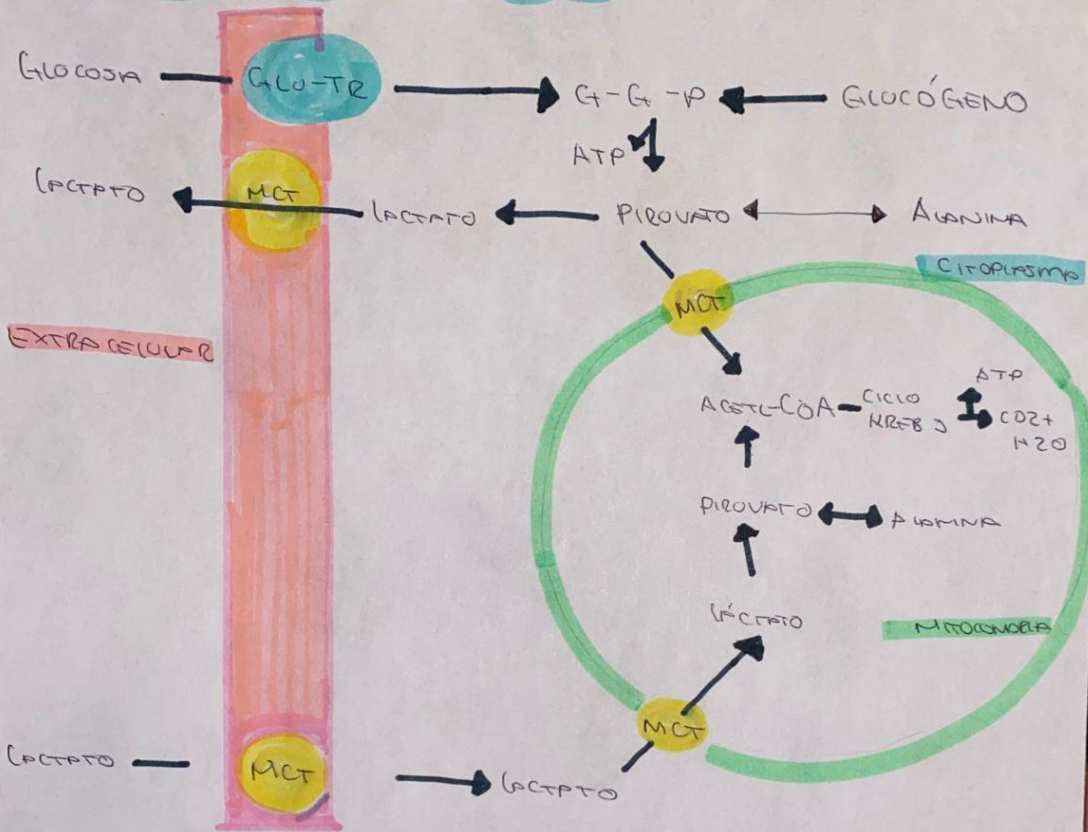 GLUCOSA
GLU-TR
G-G-P
GLUCÓGENO
ATP
LACTATO
MCT
LACTATO
PIROVATO
ALANINA
CITOPLASMA
MCT
EXTRACELULAR
ATP
ACETL-COA
CICLO
KREBS
CO2+
H2O
PIROVATO
ALANINA
LÁCTATO
MITOCONDRIA
MCT
LACTATO
MCT
LACTATO